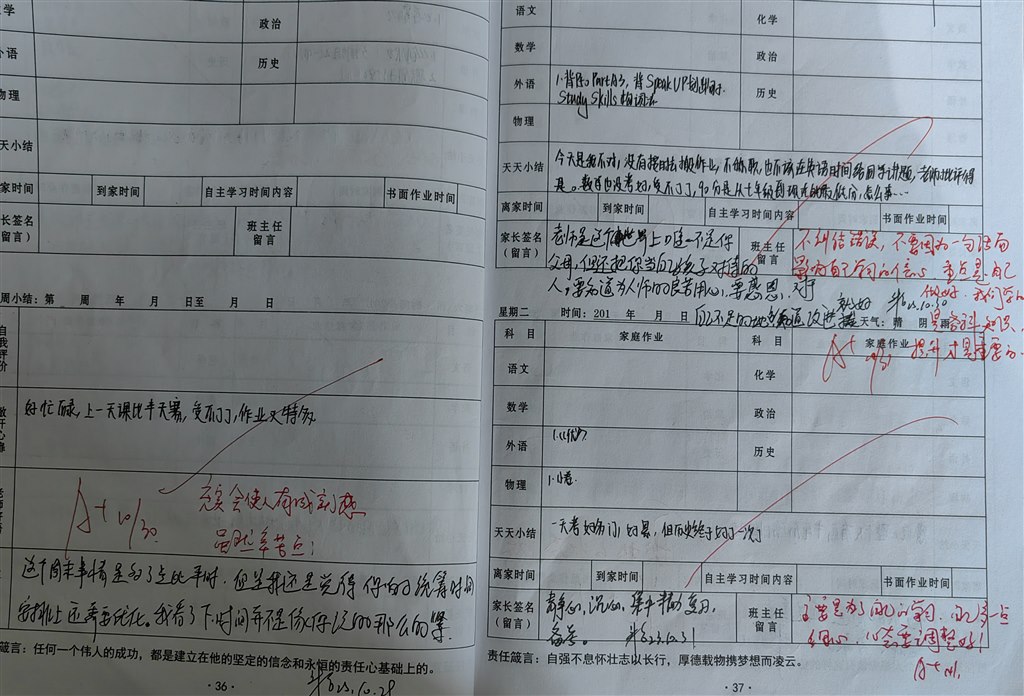 政治
外语
历史
物理
天小结
家时间
到家时间
自主学习时间内容
书面作业时间
家长签名
(留言)
班主任
留言
周小结：第 周 年 月 日至 月 日
自我评价
好忙碌，上一天课比半天累，受不了了，作业又特多
A+ 10/30
充实会使人有成就感
虽然辛苦点！
这个周末事情是多了点比平时，但是我还是觉得你的统筹时间
安排上还需要优化。我看了下时间并不是像你说的那么的紧.
箴言：任何一个伟人的成功，都是建立在他的坚定的信念和永恒的责任心基础上的。
·36·
语文
化学
数学
政治
外语
1.背P12 PartA3，背Speak UP
Study Skills
历史
物理
天天小结
今天是我不对，没有按时去搬作业，不做歌，也不该在英语时间给同学讲题，老师批评得
是。数学也没考好，受不了了，90分是从七年级到现在的最低分，怎么事…
离家时间
到家时间
自主学习时间内容
书面作业时间
家长签名
(留言)
老师是这个世界上唯一不是你
父母，但还把你当自己孩子对待的
人，要知道为人师的良苦用心，要感恩，对
自己不足的地方知道改进就好
班主任
留言
不纠结错误，不要因为一句话而
影响自己学习的信心，重点是自己
做好，我们学的
是各科知识，
提升才是重要的
A+ 10/31
星期二 时间：201 年 月 日 天气：晴 阴 雨
科目
家庭作业
科目
家庭作业
语文
化学
数学
政治
外语
历史
物理
1.小卷
天天小结
一天考好几门的累，但历史终于
离家时间
到家时间
自主学习时间内容
书面作业时间
家长签名
(留言)
静心，沉心，集中精力复习，
备考。 23.10.31
班主任
留言
主要是为了
细心，心态要调整好！
A+ 11/1
责任箴言：自强不息怀壮志以长行，厚德载物携梦想而凌云。
·37·